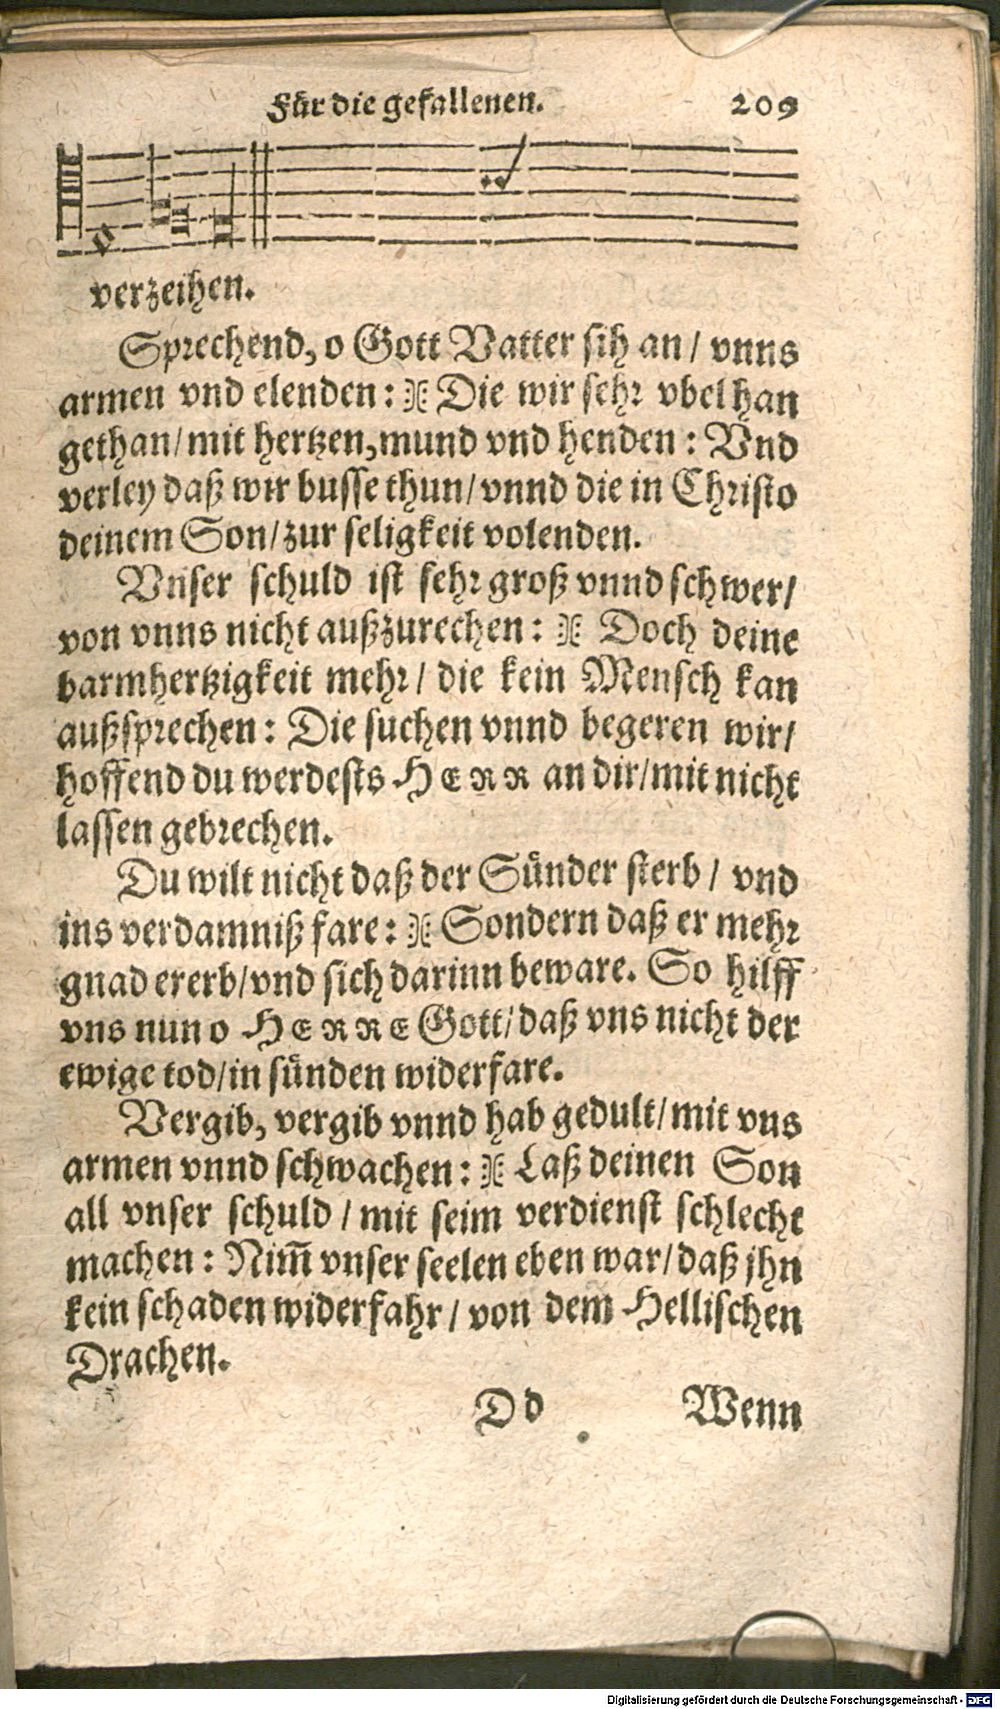 Für die gefallenen. 209
verzeihen.
Sprechend, o Gott Vatter sih an / vnns
armen vnd elenden : Die wir sehr vbel han
gethan/mit hertzen,mund vnd henden : Vnd
verley daß wir busse thun/vnnd die in Christo
deinem Son/zur seligkeit volenden.
Vnser schuld ist sehr groß vnnd schwer/
von vnns nicht außzurechen : Doch deine
barmhertzigkeit mehr / die kein Mensch kan
außsprechen : Die suchen vnnd begeren wir/
hoffend du werdests HERR an dir/mit nicht
lassen gebrechen.
Du wilt nicht daß der Sünder sterb / vnd
ins verdamniß fare : Sondern daß er mehr
gnad ererb/vnd sich darinn beware. So hilff
vns nun o HERRE Gott/daß vns nicht der
ewige tod/in sünden widerfare.
Vergib, vergib vnnd hab gedult/mit vns
armen vnnd schwachen : Laß deinen Son
all vnser schuld / mit seim verdienst schlecht
machen : Nim̄ vnser seelen eben war/daß jhn
kein schaden widerfahr / von dem Hellischen
Drachen.
Dd Wenn
Digitalisierung gefördert durch die Deutsche Forschungsgemeinschaft - DFG